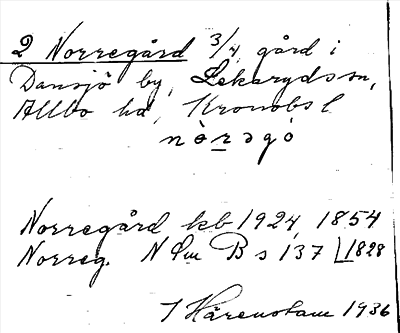 2 Norregård 3/4, gård i
Dansjö by, Lekarydssn,
Allbo hd, Kronobs l.
nòrəgó
Norregård kb 1924, 1854
Norreg. N Om B s 137 1828
I Härenstam 1936